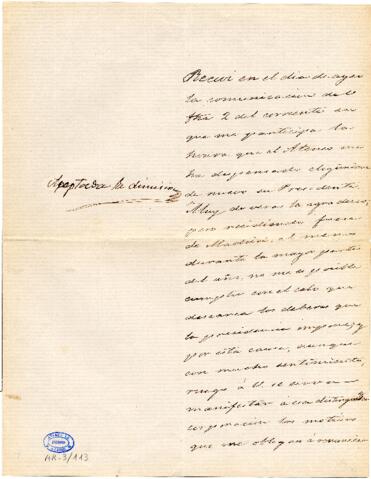 Recivi en el dia de ayer
la comunicacion de V
fha 2 del corriente en
que me participa la
honra que el Ateneo me
ha dispensado eligiendome
de nuevo su Presidente.
Aceptada la dimision
Muy de veras la agradezco,
pero residiendo fuera
de Madrid, al menos
durante la mayor parte
del año, no me es posible
cumplir con el celo que
deseara los deberes que
la presidencia impone, y
por esta causa, aunque
con mucho sentimiento,
ruego á V. se sirva
manifestar á esa distinguida
corporacion los motivos
que me obligan á renunciar
AR-3/113